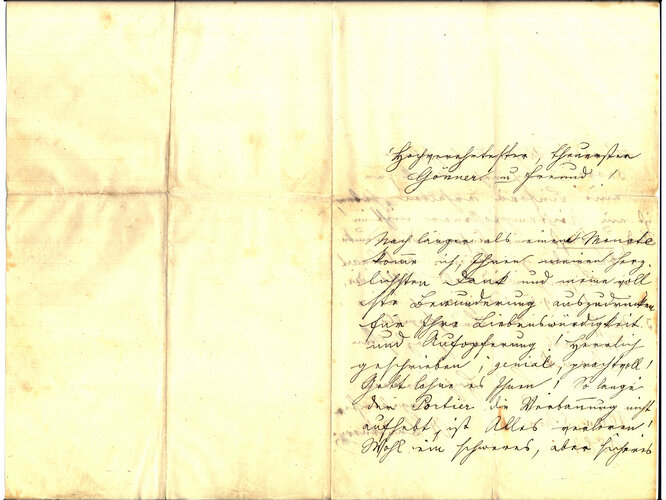 Hochverehrtester, theuerster
Gönner u Freund!
Nach länger als einem Monate
komme ich, Ihnen meinen herz-
lichsten Dank und meine voll-
ste Bewunderung auszudrücken
für Ihre Liebenswürdigkeit
und Aufopferung! Herrlich
geschrieben, genial, prachtvoll!
Gott lohne es Ihnen! So lange
der Portier die Verbannung nicht
aufhebt, ist Alles verloren!
Wohl ein schweres, aber sicheres